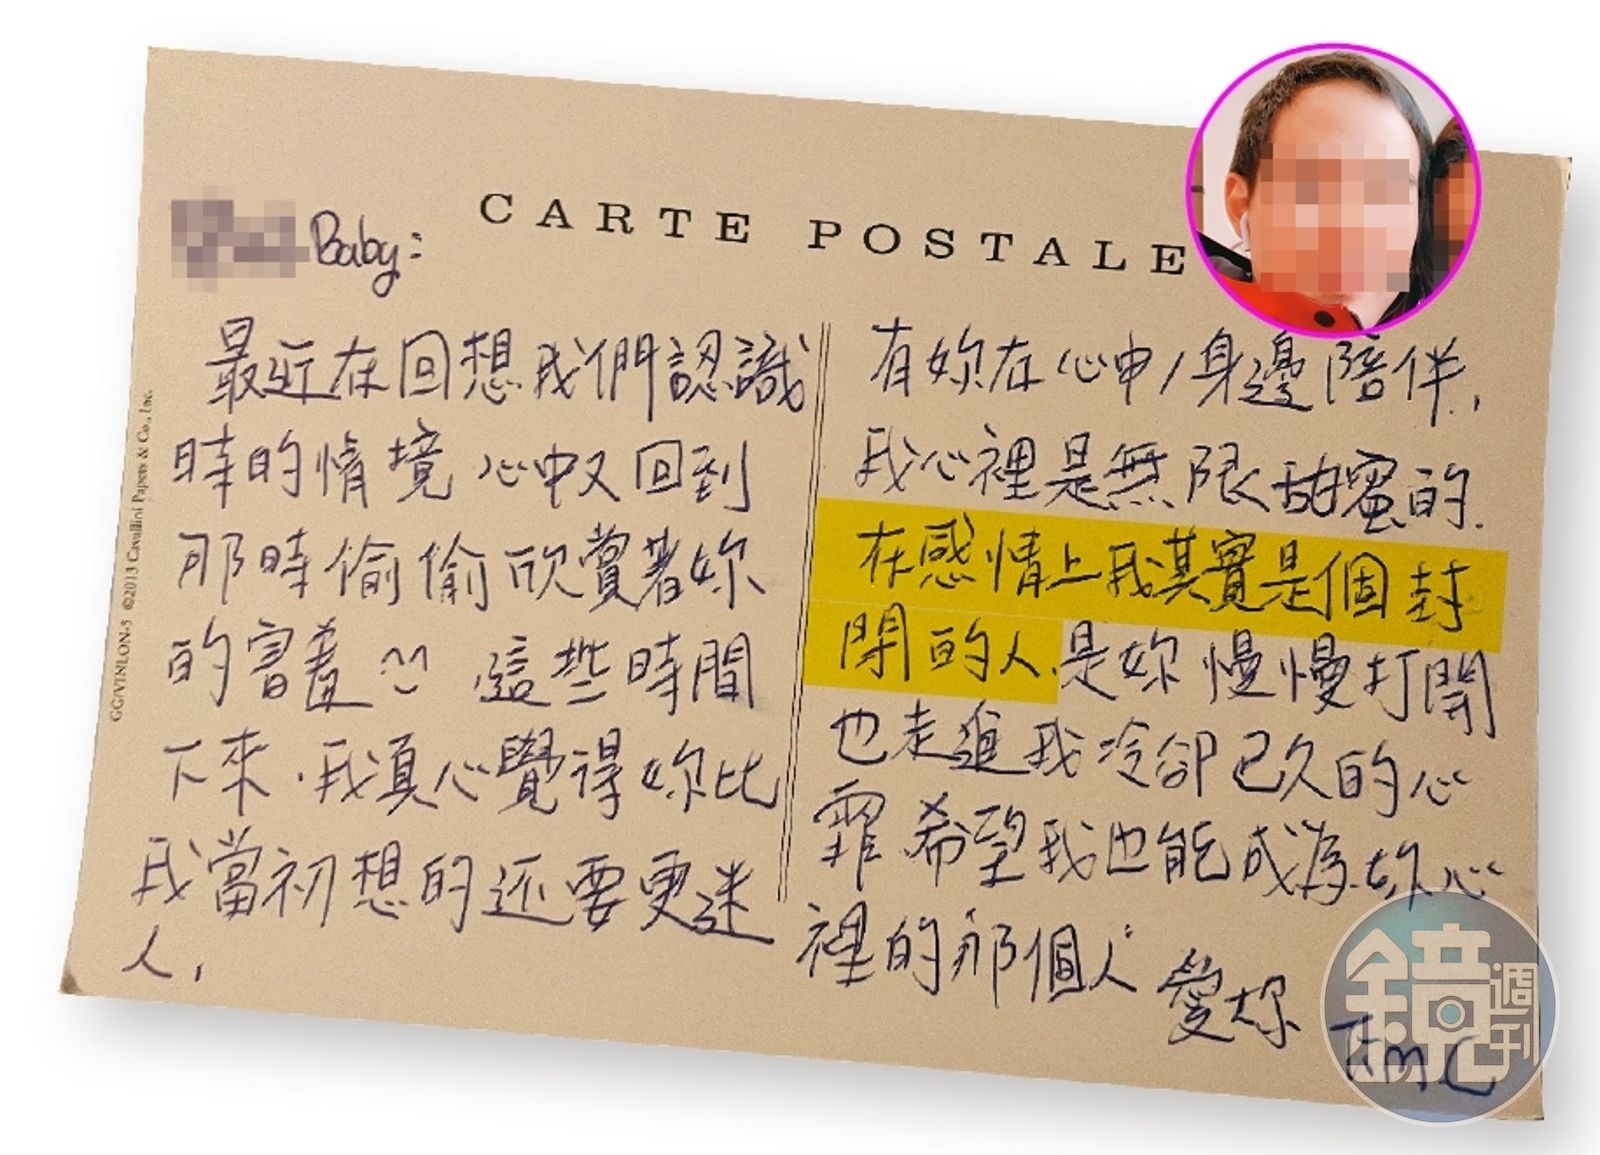 CARTE POSTALE
Baby:
最近在回想我們認識
時的情境 心中又回到
那時偷偷欣賞著妳
的害羞 這些時間
下來,我真心覺得妳比
我當初想的还要更迷
人,
有妳在心中/身邊陪伴,
我心裡是無限甜蜜的.
在感情上我其實是個封
閉的人.是妳慢慢打開
也走進我冷卻已久的心
霏 希望我也能成為妳心
裡的那個人
愛妳
GG/VINLON-5 ©2013 Cavallini Papers & Co., Inc.
鏡週刊